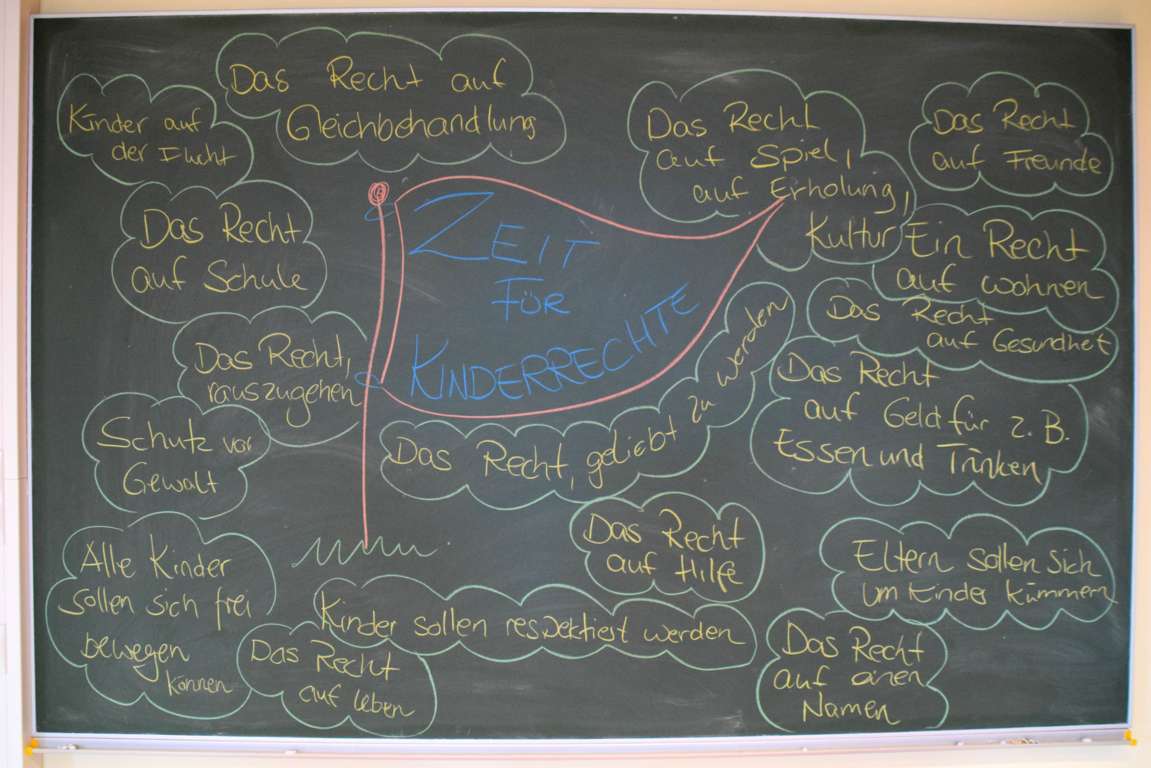 Das Recht auf
Gleichbehandlung
Kinder auf
der Flucht
Das Recht
auf Schule
Das Recht,
rauszugehen
Schutz vor
Gewalt
Alle Kinder
sollen sich frei
bewegen
können
Das Recht
auf leben
ZEIT
FÜR
KINDERRECHTE
Das Recht, geliebt zu werden
Kinder sollen respektiert werden
Das Recht
auf Hilfe
Das Recht
auf Spiel,
auf Erholung,
Kultur
Das Recht
auf Freunde
Ein Recht
auf wohnen
Das Recht
auf Gesundheit
Das Recht
auf Geld für z.B.
Essen und Trinken
Eltern sollen sich
um Kinder kümmern
Das Recht
auf einen
Namen